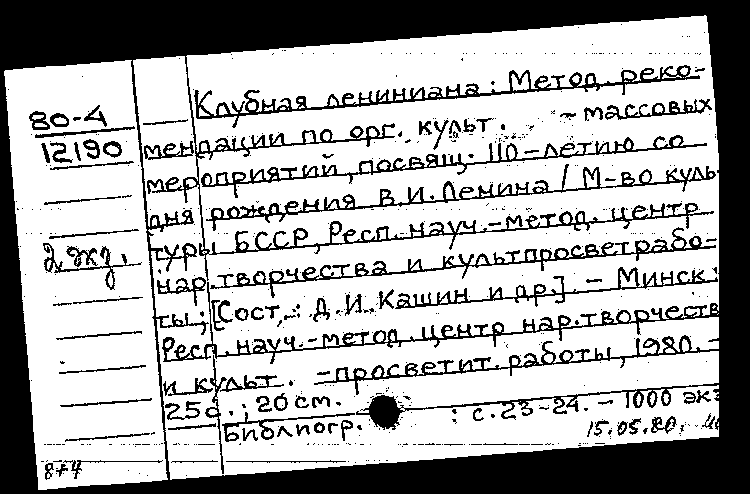 80-4
12190
2 экз.
Клубная лениниана : Метод. реко-
мендации по орг. культ. - массовых
мероприятий, посвящ. 110-летию со
дня рождения В.И. Ленина / М-во куль-
туры БССР, Респ. науч.-метод. центр
нар. творчества и культпросветрабо-
ты ; [Сост.: Д.И. Кашин и др.]. - Минск :
Респ. науч.-метод. центр нар. творчеств
и культ. -просветит. работы, 1980. -
25с. ; 20 см.
Библиогр. : с. 23-24. - 1000 экз
15.05.80.